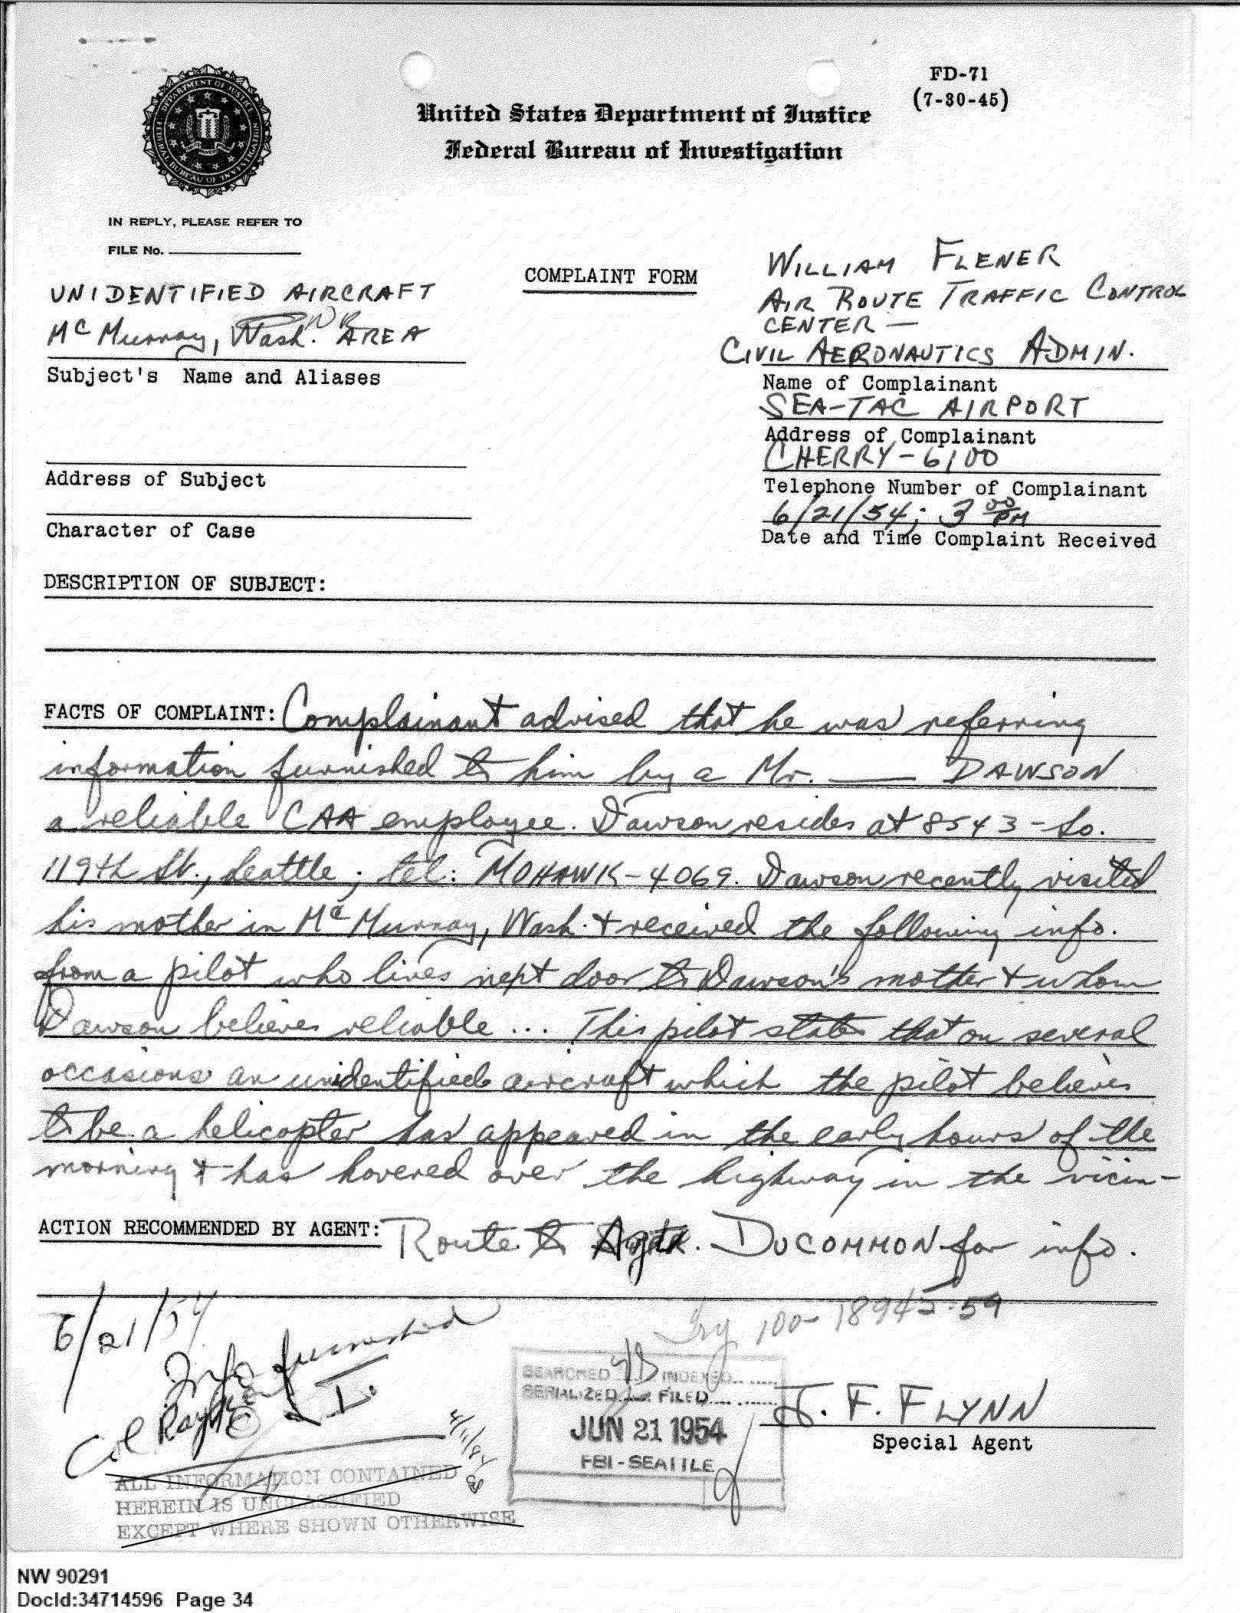 FD-71
(7-30-45)
United States Department of Justice
Federal Bureau of Investigation
IN REPLY, PLEASE REFER TO
FILE No.
COMPLAINT FORM
UNIDENTIFIED AIRCRAFT
McMurray, Wash. AREA
Subject's Name and Aliases
Address of Subject
Character of Case
WILLIAM FLENER
AIR ROUTE TRAFFIC CONTROL
CENTER —
CIVIL AERONAUTICS ADMIN.
Name of Complainant
SEA-TAC AIRPORT
Address of Complainant
CHERRY-6100
Telephone Number of Complainant
6/21/54; 3 00 PM
Date and Time Complaint Received
DESCRIPTION OF SUBJECT:
FACTS OF COMPLAINT: Complainant advised that he was referring
information furnished to him by a Mr. ___ DAWSON
a reliable CAA employee. Dawson resides at 8543-So.
119th St., Seattle; tel: MOHAWK-4069. Dawson recently visited
his mother in McMurray, Wash. + received the following info.
from a pilot who lives next door to Dawson's mother + whom
Dawson believes reliable ... This pilot states that on several
occasions an unidentified aircraft which the pilot believes
to be a helicopter has appeared in the early hours of the
morning + has hovered over the highway in the vicin-
ACTION RECOMMENDED BY AGENT: Route to DUCOMMON for info.
6/21/54
Info furnished
Col
100-18945-59
SEARCHED INDEXED
SERIALIZED FILED
JUN 21 1954
FBI-SEATTLE
J. F. FLYNN
Special Agent
ALL INFORMATION CONTAINED
HEREIN IS UNCLASSIFIED
EXCEPT WHERE SHOWN OTHERWISE
NW 90291
DocId:34714596 Page 34